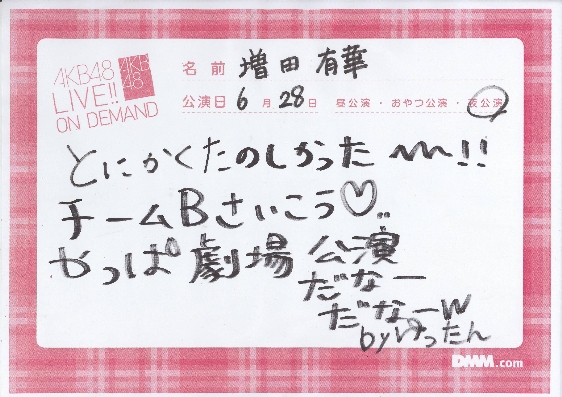 AKB48
LIVE!!
ON DEMAND
AKB
48
名前 増田 有華
公演日 6月28日 昼公演・おやつ公演・夜公演
とにかくたのしかった〜!!
チームBさいこう♡..
やっぱ劇場公演
だなー
だなーw
byゆったん
DMM.com